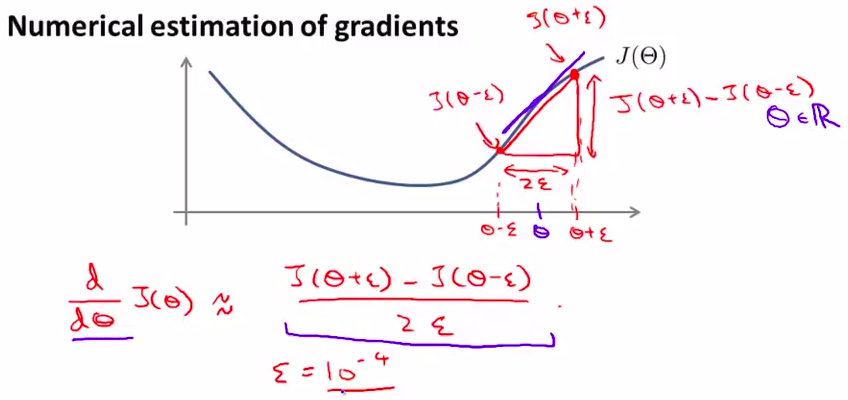 Numerical estimation of gradients
J(θ+ε)
J(Θ)
J(θ-ε)
J(θ+ε) - J(θ-ε)
θ ∈ ℝ
2ε
θ-ε θ θ+ε
d/dθ J(θ) ≈ J(θ+ε) - J(θ-ε) / 2ε
ε = 10^-4